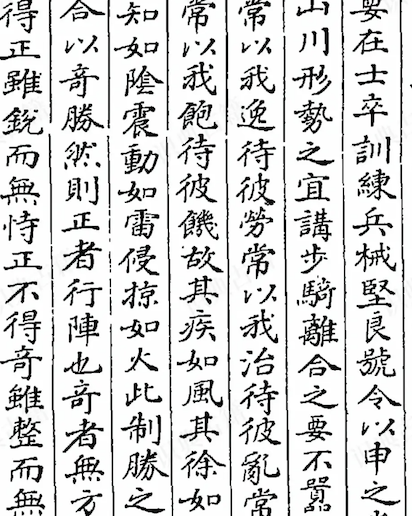 要在士卒訓練兵械堅良號令以申之
山川形勢之宜講步騎離合之要不嚚
常以我逸待彼勞常以我治待彼亂常
常以我飽待彼饑故其疾如風其徐如
知如陰震動如雷侵掠如火此制勝之
合以奇勝然則正者行陣也奇者無方
得正雖銳而無恃正不得奇雖整而無